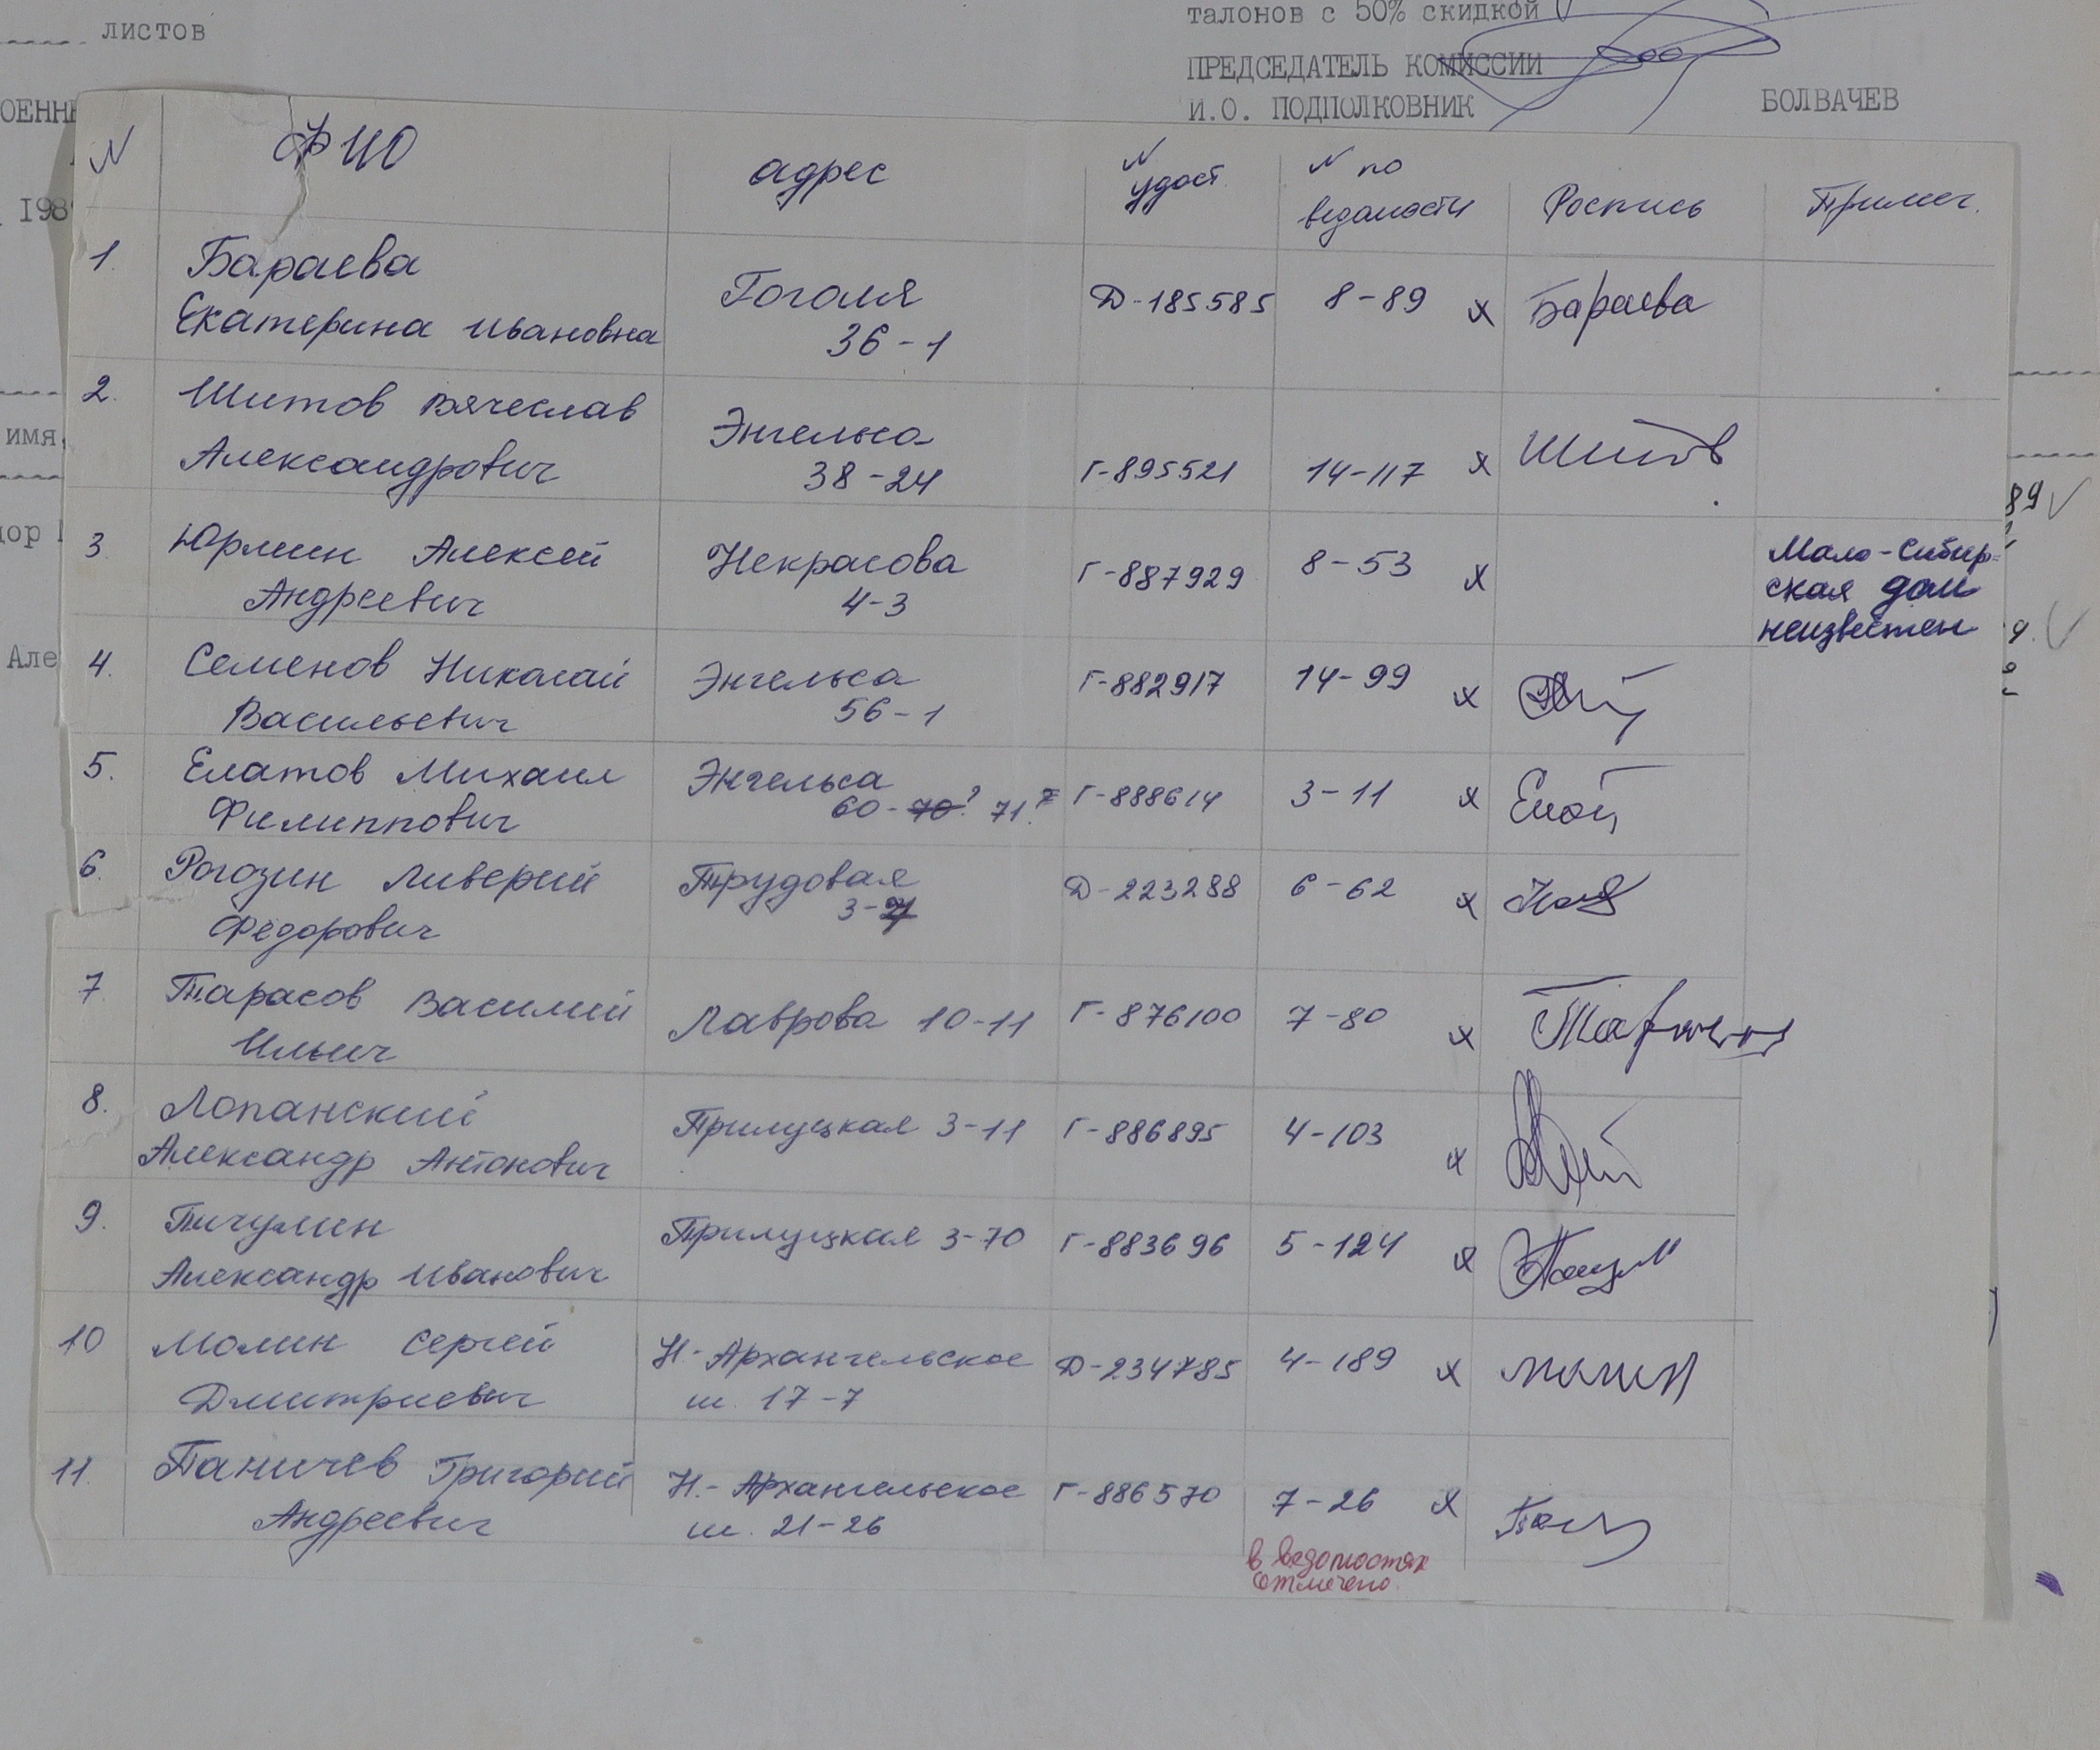 листов
талонов с 50% скидкой
ПРЕДСЕДАТЕЛЬ КОМИССИИ
И.О. ПОДПОЛКОВНИК БОЛВАЧЕВ
N ФИО адрес N удост. N по ведомости Роспись Примеч.
1. Бараева
Екатерина Ивановна
Гоголя
36-1
Д-185585 8-89 х Бараева
2. Шитов Вячеслав
Александрович
Энгельса
38-24
Г-895521 14-117 х Шитов
3. Юрмин Алексей
Андреевич
Некрасова
4-3
Г-887929 8-53 х
Мало-Сибир=
ская дом
неизвестен
4. Семенов Николай
Васильевич
Энгельса
56-1
Г-882917 14-99 х
5. Елатов Михаил
Филиппович
Энгельса
60-70? 71.
Г-888614 3-11 х
6. Рогозин Ливерий
Федорович
Трудовая
3-
Д-223288 6-62 х
7. Тарасов Василий
Ильич
Лаврова 10-11 Г-876100 7-80 х
8. Лопанский
Александр Антонович
Прилуцкая 3-11 Г-886895 4-103 х
9. Пичулин
Александр Иванович
Прилуцкая 3-70 Г-883696 5-124 х
10 Молин Сергей
Дмитриевич
Н-Архангельское
ш. 17-7
Д-234785 4-189 х Молин
11. Паничев Григорий
Андреевич
Н.-Архангельское
ш. 21-26
Г-886570 7-26 х
в ведомостях
отмечено.
ОЕНН
198
имя,
ор
Але
89